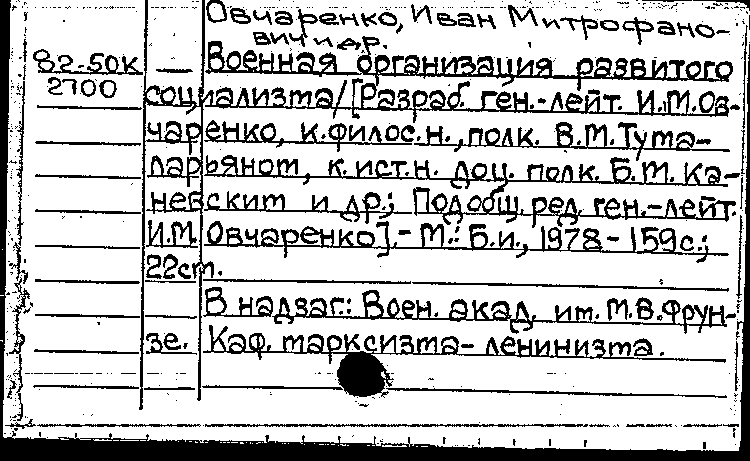 Овчаренко, Иван Митрофано-
вич и др.
82-50К — Военная организация развитого
2700 социализма/[Разраб. ген.-лейт. И.М.Ов-
чаренко, к.филос.н., полк. В.М.Тума-
ларьяном, к.ист.н. доц. полк. Б.М. Ка-
невским и др.; Под общ. ред. ген.-лейт.
И.М. Овчаренко].- М.: Б.и., 1978 - 159с.;
22см.
В надзаг.: Воен. акад. им. М.В.Фрун-
зе. Каф. марксизма-ленинизма.